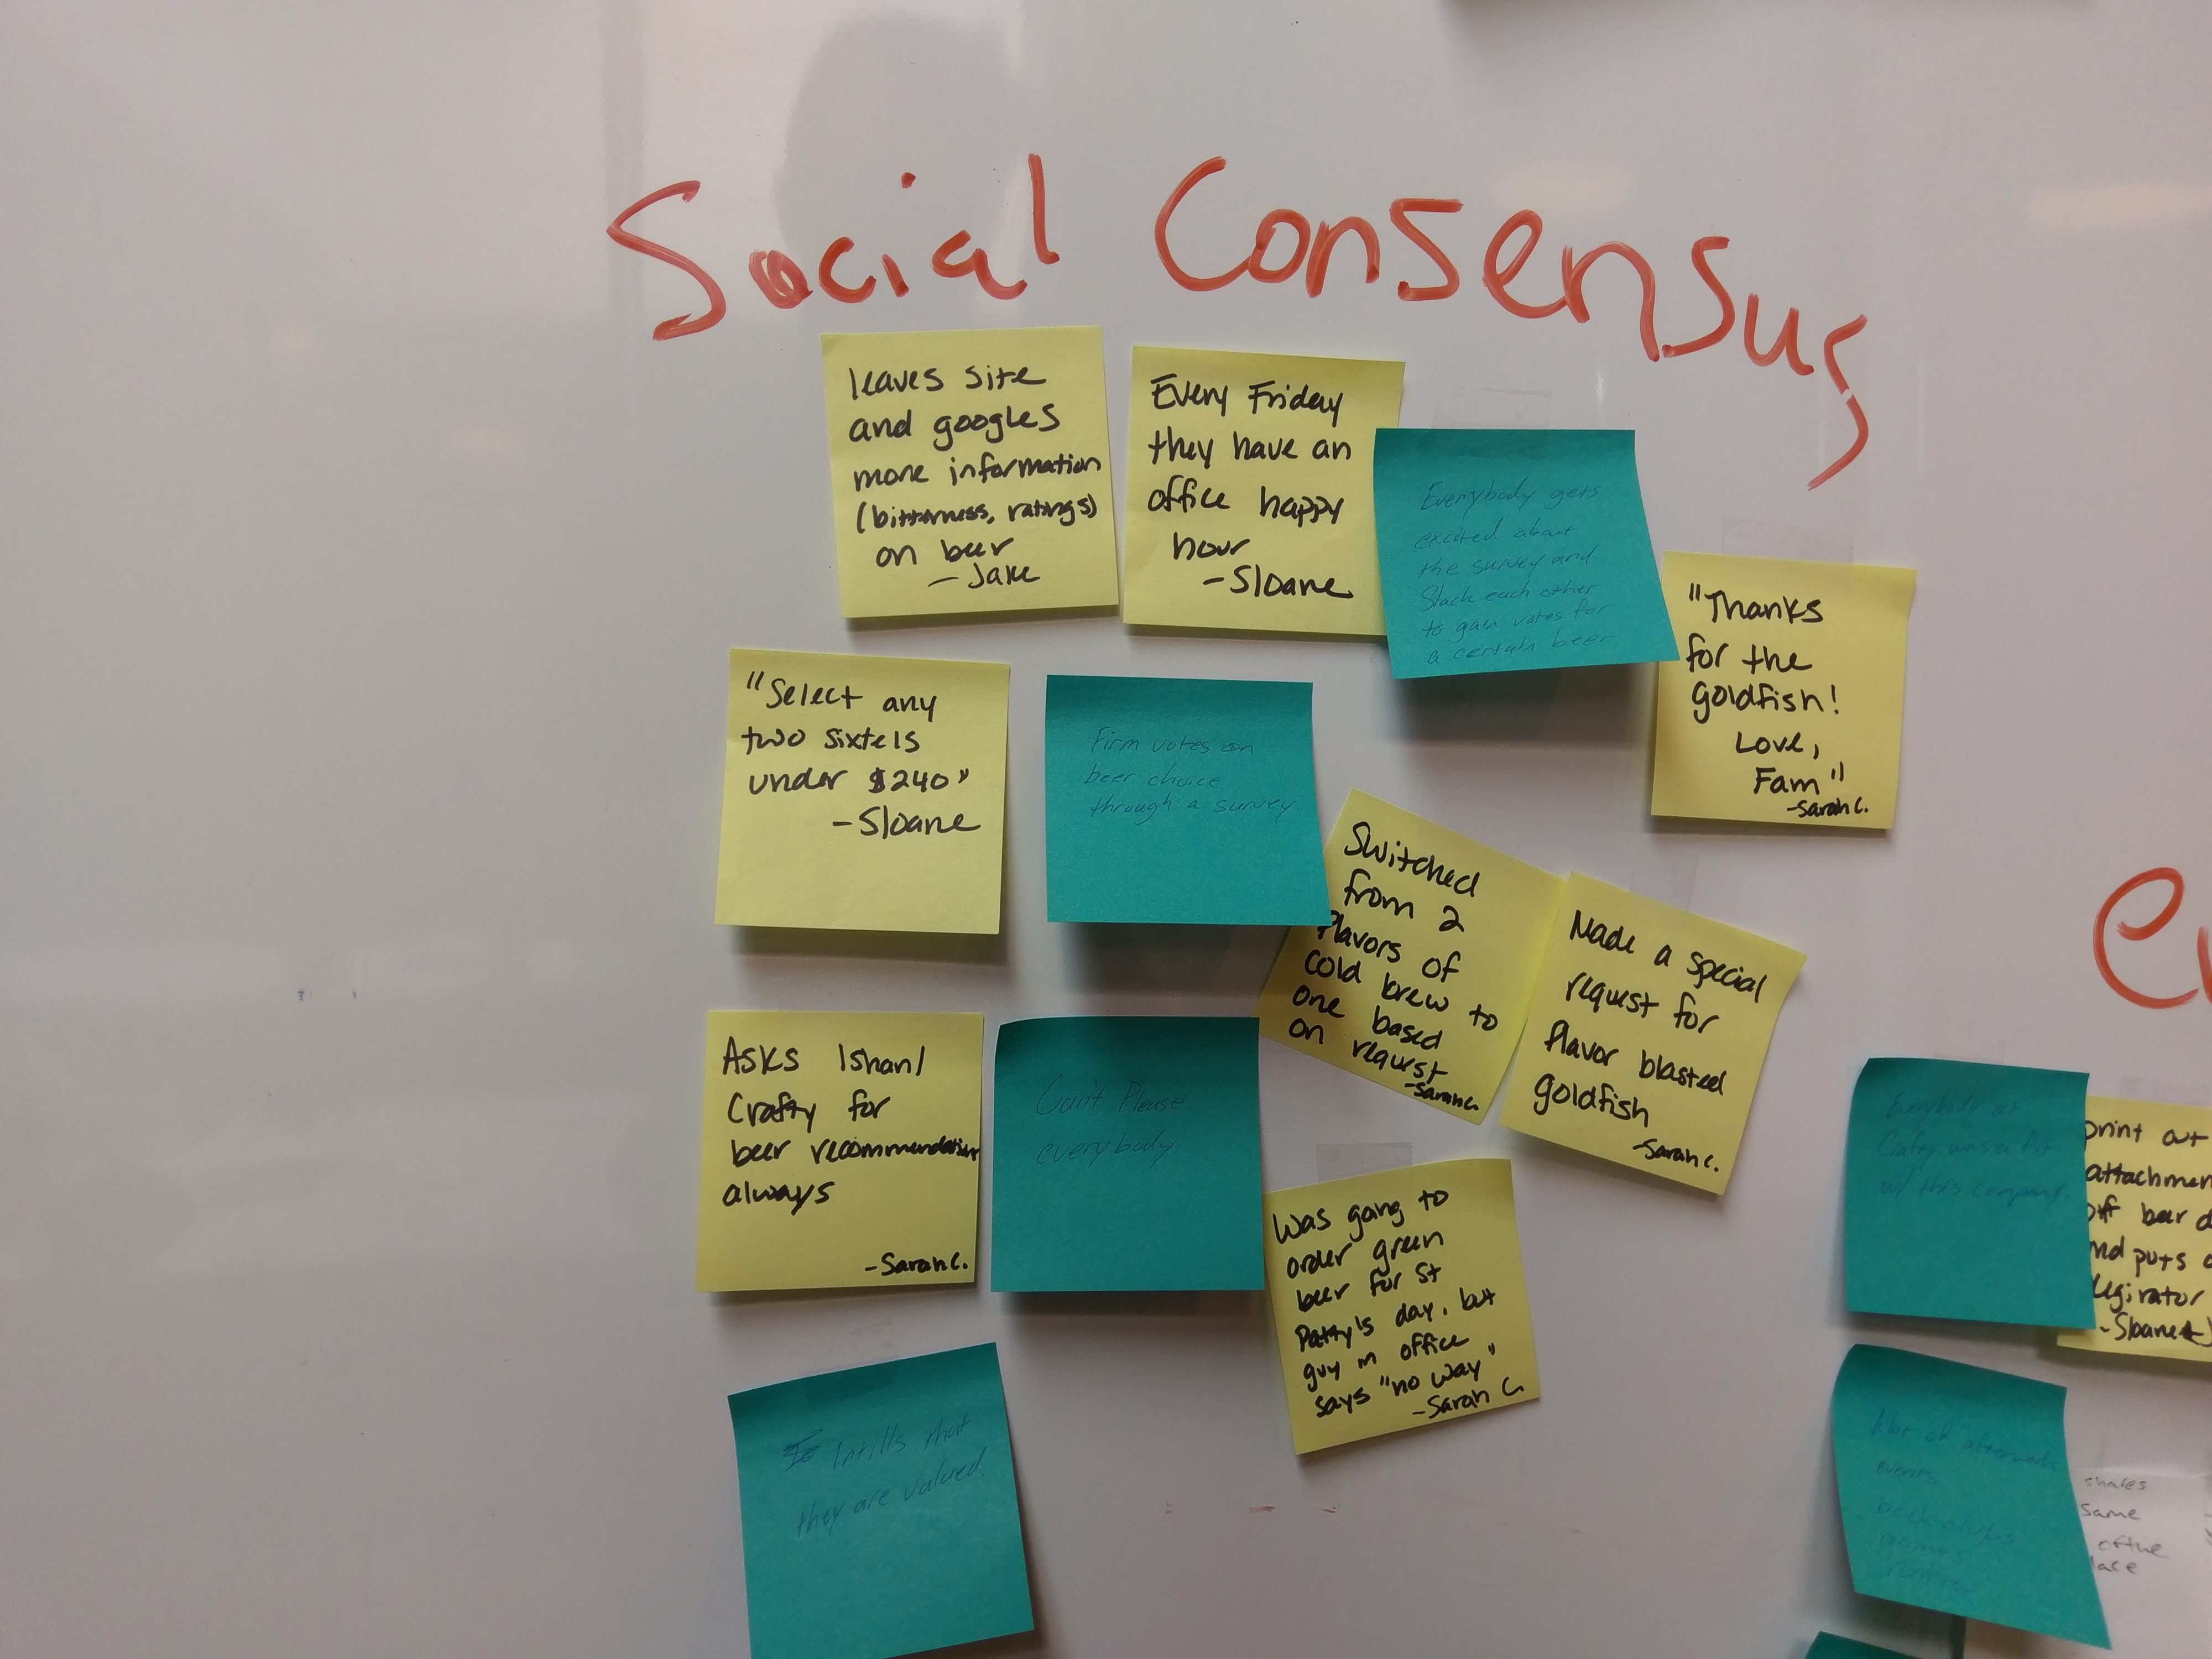 Social Consensus
leaves site
and googles
more information
(bitterness, ratings)
on beer
- Jake
Every Friday
they have an
office happy
hour
- Sloane
Everybody gets
excited about
the survey and
Slack each other
to gain votes for
a certain beer.
"Thanks
for the
goldfish!
Love,
Fam"
- Sarah C.
"Select any
two sixtels
under $240"
- Sloane
Firm votes on
beer choice
through a survey.
Switched
from 2
flavors of
cold brew to
one based
on request
- Sarah C.
Made a special
request for
flavor blasted
goldfish
- Sarah C.
Asks Ishan/
Crafty for
beer recommendations
always
- Sarah C.
Can't Please
everybody
Was going to
order green
beer for St
Patty's day, but
guy in office
says "no way"
- Sarah C
Intills that
they are valued.
Everybody at
Crafty was a fit
w/ this company.
print out
attachmen
off beer
and puts
- Sloane
A lot of afterwork
events
games
shares
same